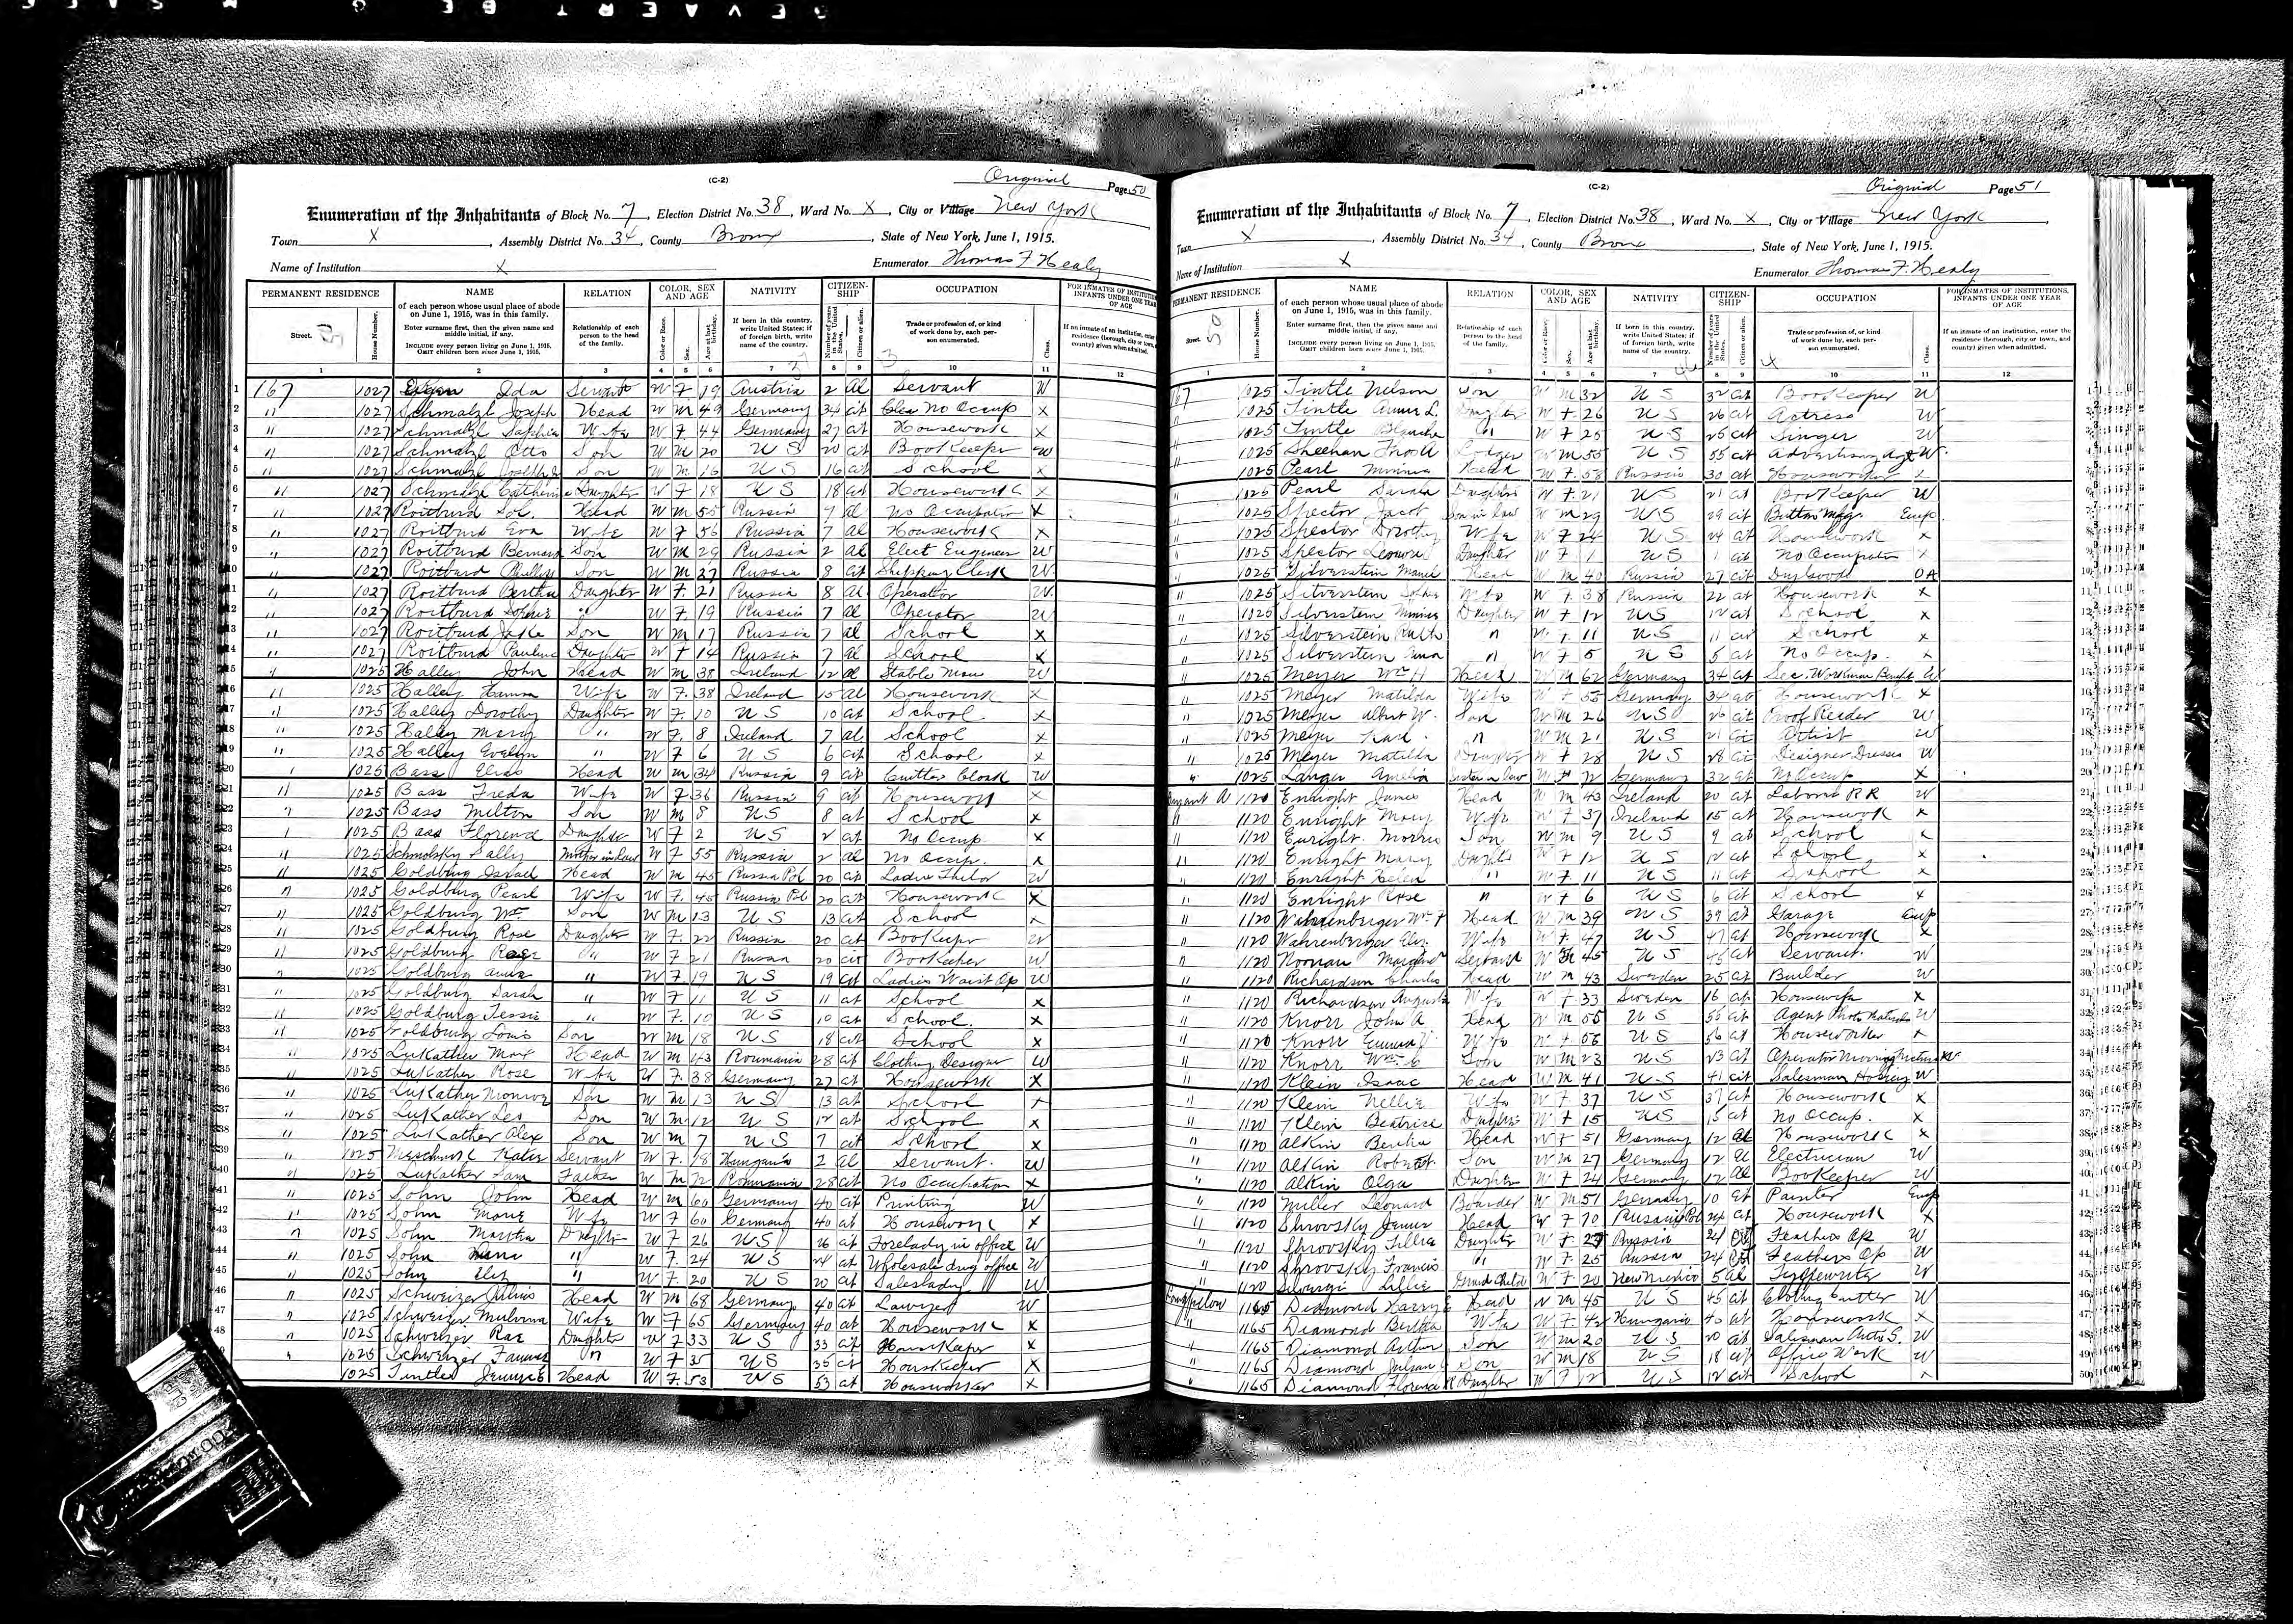 (C-2)
Original
Page 50
Enumeration of the Inhabitants of Block No. 7, Election District No. 38, Ward No. X, City or Village New York
Town X, Assembly District No. 34, County Bronx, State of New York, June 1, 1915.
Name of Institution X Enumerator Thomas F. Healy
PERMANENT RESIDENCE NAME RELATION COLOR, SEX AND AGE NATIVITY CITIZENSHIP OCCUPATION
Street. House Number.
of each person whose usual place of abode on June 1, 1915, was in this family.
Enter surname first, then the given name and middle initial, if any.
INCLUDE every person living on June 1, 1915. OMIT children born since June 1, 1915.
Relationship of each person to the head of the family.
Color or Race. Sex. Age at last birthday.
If born in this country, write United States; if of foreign birth, write name of the country.
Number of years in the United States. Citizen or alien.
Trade or profession of, or kind of work done by, each person enumerated. Class.
1 2 3 4 5 6 7 8 9 10 11 12
1 167 1027 Ida Servant W F 19 Austria 2 Al Servant W
2 " 1027 Schmalzl Joseph Head W M 49 Germany 34 cit No Occup X
3 " 1027 Schmalzl Wife W F 44 Germany 27 cit Housework X
4 " 1027 Schmalzl Otto Son W M 20 U S 20 cit BookKeeper W
5 " 1027 Schmalzl Son W M 16 U S 16 cit School X
6 " 1027 Schmalzl Catherine Daughter W F 18 U S 18 cit Housework X
7 " 1027 Roitburd Sol. Head W M 55 Russia 9 al No Occupation X
8 " 1027 Roitburd Eva Wife W F 56 Russia 7 Al Housework X
9 " 1027 Roitburd Bernard Son W M 29 Russia 2 al Elect Engineer W
10 " 1027 Roitburd Phillip Son W M 27 Russia 8 Cit Shipping Clerk W
11 " 1027 Roitburd Bertha Daughter W F 21 Russia 8 Al Operator W
12 " 1027 Roitburd Sophie " W F 19 Russia 7 al Operator W
13 " 1027 Roitburd Son W M 17 Russia 7 Al School X
14 " 1027 Roitburd Pauline Daughter W F 14 Russia 7 Al School X
15 " 1025 Halley John Head W M 38 Ireland 12 al Stable Man W
16 " 1025 Halley Wife W F 38 Ireland 15 Al Housework X
17 " 1025 Halley Dorothy Daughter W F 10 U S 10 cit School X
18 " 1025 Halley Mary " W F 8 Ireland 7 al School X
19 " 1025 Halley Evelyn " W F 6 U S 6 cit School X
20 1025 Bass Elias Head W M 34 Russia 9 cit Cutter Cloak W
21 " 1025 Bass Freda Wife W F 36 Russia 9 cit Housework X
22 " 1025 Bass Milton Son W M 8 US 8 cit School X
23 1025 Bass Florence Daughter W F 2 U S 2 cit No Occup. X
24 " 1025 Schmolsky Sally Mother in Law W F 55 Russia 2 al No Occup. X
25 " 1025 Goldburg Israel Head W M 45 Russia Pol 20 cit Ladies Tailor W
26 " 1025 Goldburg Pearl Wife W F 45 Russia Pol 20 cit Housework X
27 " 1025 Goldburg Wm. Son W M 13 U S 13 cit School X
28 " 1025 Goldburg Rose Daughter W F 22 Russia 20 cit BooKeeper W
29 " 1025 Goldburg " W F 21 Russia 20 cit BooKeeper W
30 " 1025 Goldburg Anna " W F 19 U S 19 Cit Ladies Waist Op W
31 " 1025 Goldburg Sarah " W F 11 U S 11 cit School X
32 " 1025 Goldburg Jessie " W F 10 U S 10 cit School. X
33 " 1025 Goldburg Louis Son W M 18 U S 18 cit School X
34 " 1025 LuKather Max Head W M 43 Roumania 28 cit Clothing Designer W
35 " 1025 LuKather Rose Wife W F 38 Germany 27 cit Housework X
36 " 1025 LuKather Monroe Son W M 13 U S 13 cit School X
37 " 1025 LuKather Leo Son W M 12 U S 12 cit School X
38 " 1025 LuKather Alex Son W M 7 U S 7 cit School X
39 " 1025 Katie Servant W F 18 Hungaria 2 al Servant. W
40 " 1025 LuKather Sam Father W M 72 Roumania 28 cit No Occupation X
41 " 1025 Sohn John Head W M 60 Germany 40 cit Printing W
42 " 1025 Sohn Marie Wife W F 60 Germany 40 cit Housework X
43 " 1025 Sohn Martha Daughter W F 26 U S 26 cit Forelady in office W
44 " 1025 Sohn " W F 24 U S 24 cit Wholesale drug office W
45 " 1025 Sohn Eliz " W F 20 U S 20 cit Saleslady W
46 " 1025 Schweizer Julius Head W M 68 Germany 40 cit Lawyer W
47 " 1025 Schweizer Wife W F 65 Germany 40 cit Housework X
48 " 1025 Schweizer Rae Daughter W F 33 U S 33 cit HouseKeeper X
" 1025 Schweizer Fannie " W F 35 U S 35 cit HouseKeeper X
1025 Tintle Jennie E Head W F 53 U S 53 cit Houseworker X
(C-2)
Original
Page 51
Enumeration of the Inhabitants of Block No. 7, Election District No. 38, Ward No. X, City or Village New York
Town X, Assembly District No. 34, County Bronx, State of New York, June 1, 1915.
Name of Institution X Enumerator Thomas F. Healy
PERMANENT RESIDENCE NAME RELATION COLOR, SEX AND AGE NATIVITY CITIZENSHIP OCCUPATION FOR INMATES OF INSTITUTIONS, INFANTS UNDER ONE YEAR OF AGE
If an inmate of an institution, enter the residence (borough, city or town, and county) given when admitted.
1 2 3 4 5 6 7 8 9 10 11 12
167 1025 Tintle Nelson Son W M 32 U S 32 cit BooKKeeper W
" 1025 Tintle Annie L. Daughter W F 26 U S 26 cit Actress W
" 1025 Tintle Blanche " W F 25 U S 25 cit Singer W
" 1025 Sheehan Lodger W M 55 U S 55 cit Advertising Agt W
" 1025 Pearl Minnie Head W F 58 Russia 30 cit Houseworker X
" 1025 Pearl Sarah Daughter W F 21 U S 21 cit BooKKeeper W
" 1025 Spector Jacob Son in Law W M 29 U S 29 cit Button Mfgr. Emp.
" 1025 Spector Dorothy Wife W F 24 U S 24 cit Housework X
" 1025 Spector Leonore Daughter W F 1 U S 1 cit No Occupation X
" 1025 Silverstein Head W M 40 Russia 27 cit Dry Goods OA
" 1025 Silverstein Wife W F 38 Russia 22 cit Housework X
" 1025 Silverstein Minnie Daughter W F 12 US 12 cit School X
" 1025 Silverstein Ruth " W F 11 U S 11 cit School X
" 1025 Silverstein Anna " W F 5 U S 5 cit No Occup. X
" 1025 Meyer Wm H Head W M 62 Germany 34 cit Sec. Workman Benefit W
" 1025 Meyer Matilda Wife W F 55 Germany 34 cit Housework X
" 1025 Meyer Albert W. Son W M 26 U S 26 cit Proof Reader W
" 1025 Meyer Karl " W M 21 U S 21 cit Artist W
" 1025 Meyer Matilda Daughter W F 28 U S 28 cit Designer Dresses W
" 1025 Langer Amelia Sister in Law W F 72 Germany 32 cit No Occup X
Bryant A 1120 Enright James Head W M 43 Ireland 20 cit Laborer RR W
" 1120 Enright Mary Wife W F 37 Ireland 15 cit Housework X
" 1120 Enright Morris Son W M 9 U S 9 cit School X
" 1120 Enright Mary Daughter W F 12 U S 12 cit School X
" 1120 Enright Helen " W F 11 U S 11 cit School X
" 1120 Enright Rose " W F 6 U S 6 cit School X
" 1120 Wahrenberger Wm F Head W M 39 U S 39 cit Garage Emp
" 1120 Wahrenberger Eliz. Wife W F 47 U S 47 cit Housework X
" 1120 Noonan Margaret Servant W F 45 U S 45 cit Servant. W
" 1120 Richardson Charles Head W M 43 Sweden 25 cit Builder W
" 1120 Richardson Augusta Wife W F 33 Sweden 16 cit Housewife X
" 1120 Knorr John A Head W M 55 U S 55 cit Agent W
" 1120 Knorr Emma J Wife W F 56 U S 56 cit Houseworker X
" 1120 Knorr Wm. C Son W M 23 U S 23 cit Operator Moving Pictures W
" 1120 Klein Isaac Head W M 41 U S 41 cit Salesman Hosiery W
" 1120 Klein Nellie Wife W F 37 U S 37 cit Housework X
" 1120 Klein Beatrice Daughter W F 15 US 15 cit No Occup. X
" 1120 Alkin Bertha Head W F 51 Germany 12 Al Housework X
" 1120 Alkin Robert Son W M 27 Germany 12 al Electrician W
" 1120 Alkin Olga Daughter W F 24 Germany 12 Al BooKeeper W
" 1120 Miller Leonard Boarder W M 51 Germany 10 Cit Painter Emp
" 1120 Shrovsky Jennie Head W F 70 Russia Pol 24 cit Housework X
" 1120 Shrovsky Lillie Daughter W F 27 Russia 24 cit Feathers Op W
" 1120 Shrovsky Francis " W F 25 Russia 24 cit Feathers Op W
" 1120 Lillie Grand Child W F 20 New Mexico 5 al Typewriter W
Longfellow 1165 Diamond Harry Head W M 45 U S 45 cit Clothing Cutter W
" 1165 Diamond Bertha Wife W F 42 Hungaria 40 cit Housework X
" 1165 Diamond Arthur Son W M 20 U S 20 cit Salesman W
" 1165 Diamond Son W M 18 U S 18 cit Office Work W
" 1165 Diamond Florence R Daughter W F 12 U S 12 cit School X